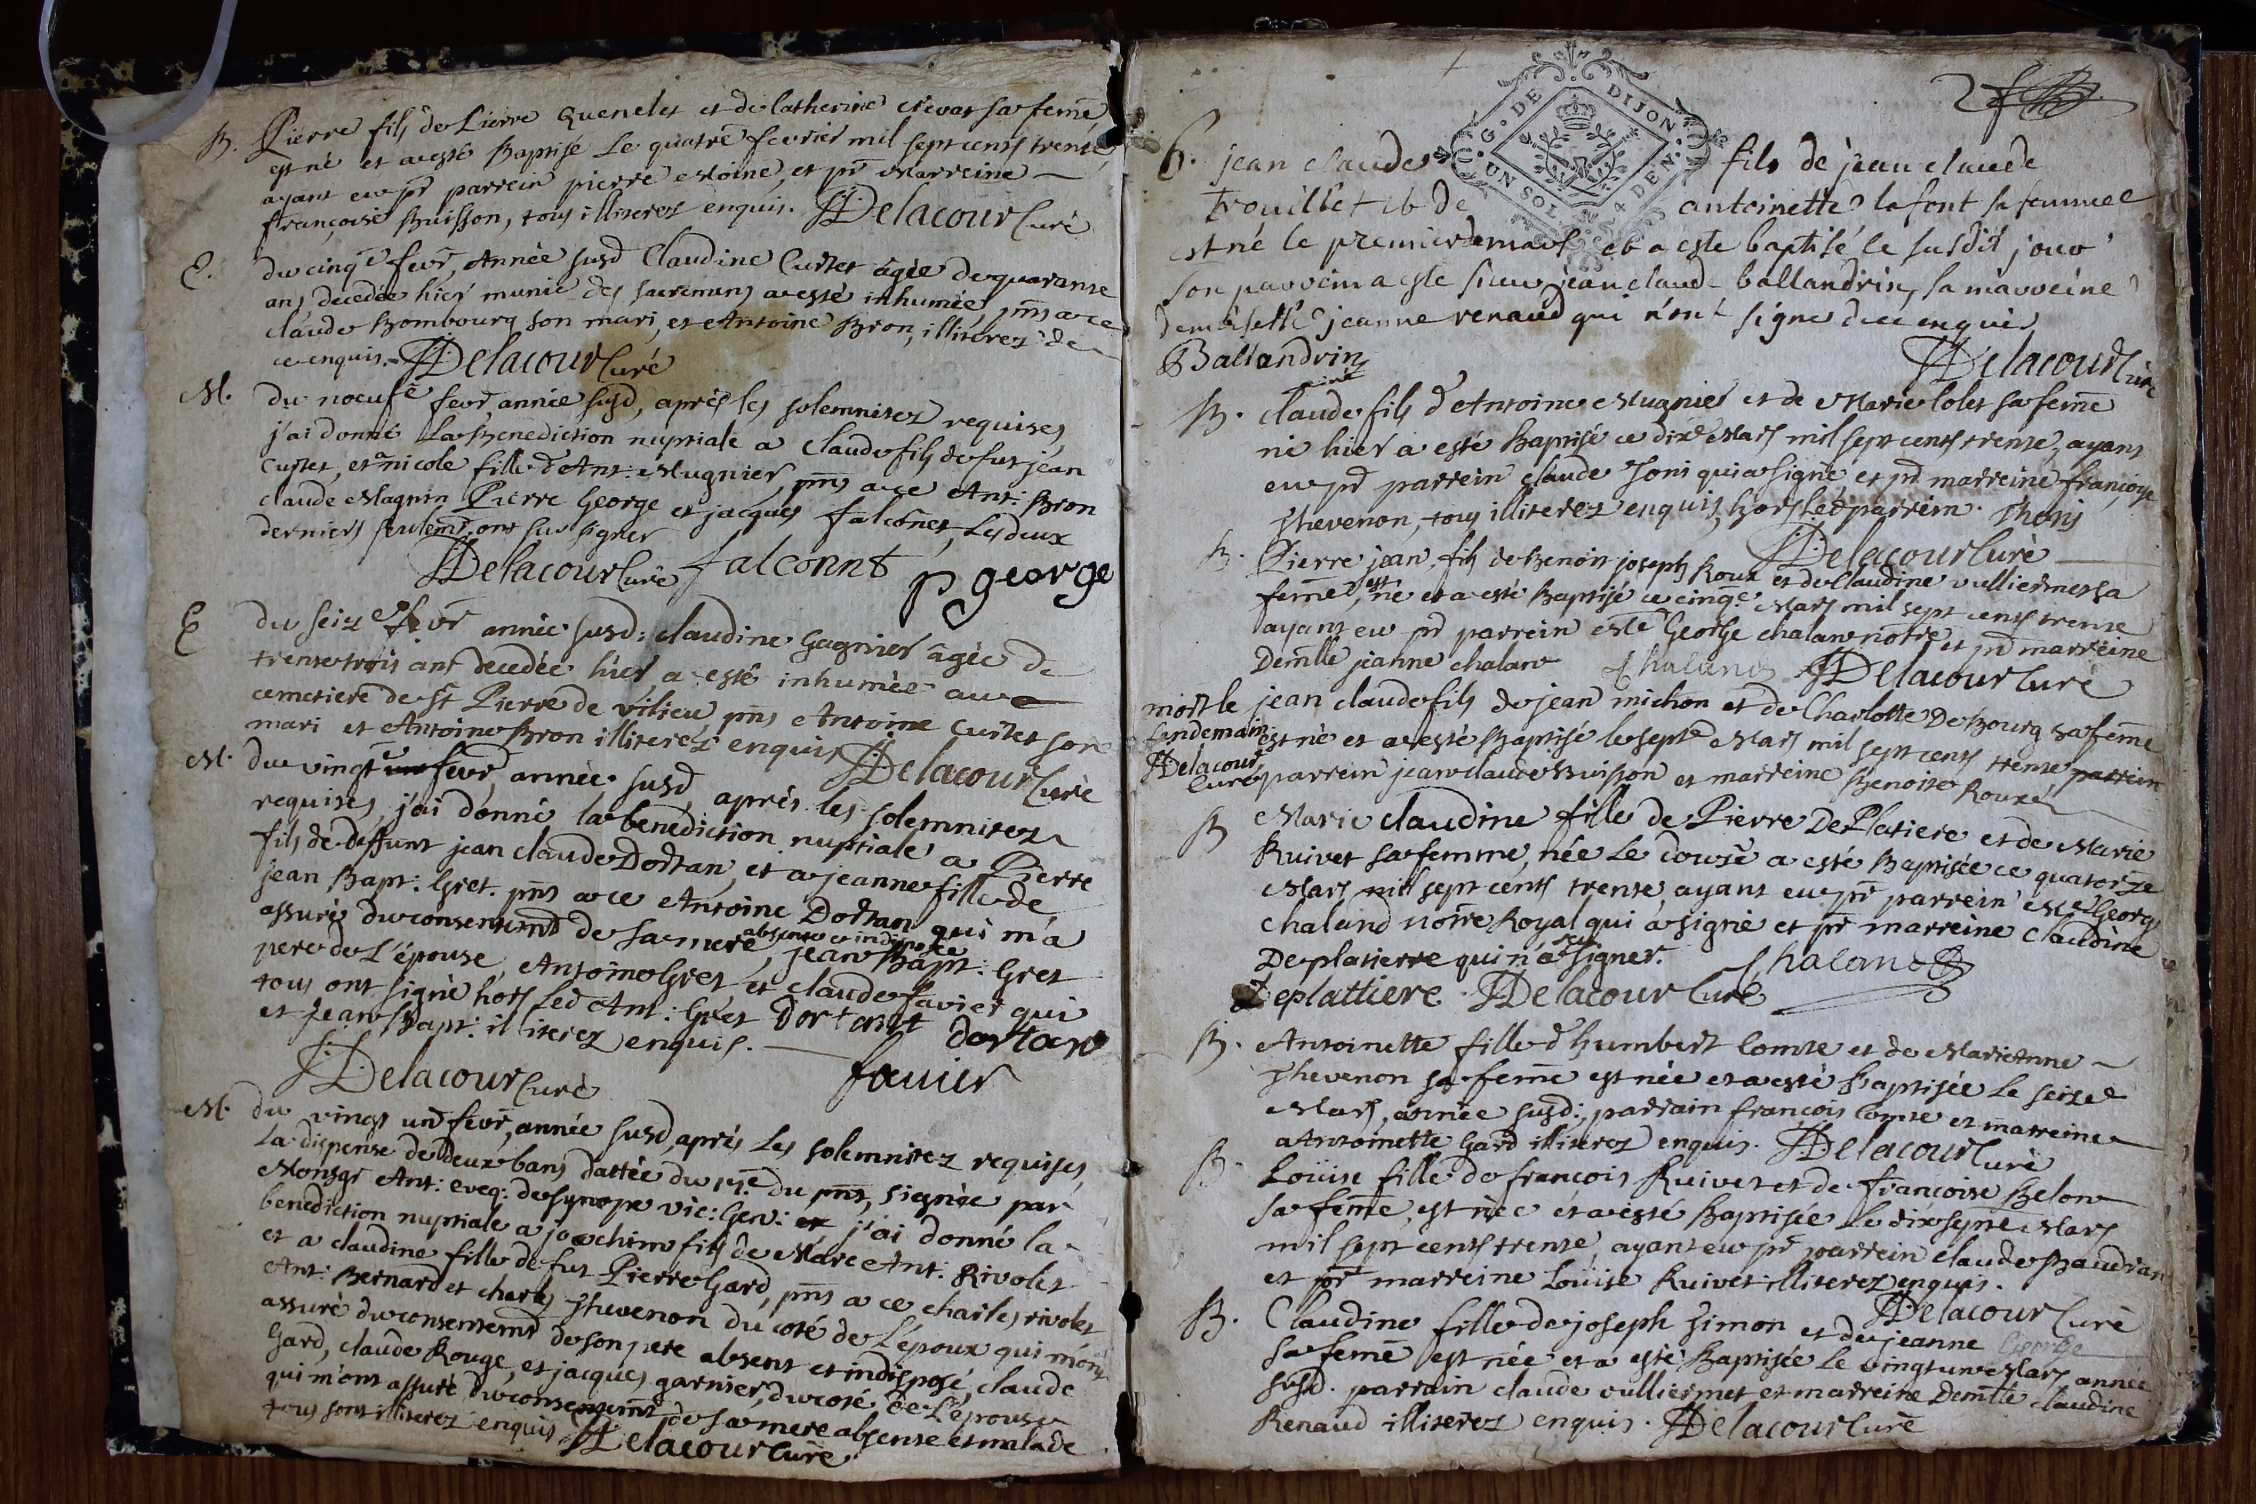 B. Pierre fils de Pierre Quenelet et de Catherine crevat sa feme
est né et a esté Baptisé Le quatre fevrier mil sept cents trente
ayant eu pr parrein pierre Moine, et pr Marreine
françoise Buisson, tous illiterez enquis. Delacour Curé
E. du cinqe fevr, Année susd Claudine Curtet âgée de quarante
ans decedée hier munie des sacremens a esté inhumée, pnts a ce
claude Bombourg son mari, et Antoine Bron, illiterez de
ce enquis. Delacour Curé
M. du noeufe fevr, année susd, après les solemnitez requises,
j'ai donné La Benediction nuptiale a Claude fils de fut jean
Curtet, et a nicole fille d'Ant: Mugnier, pnts a ce Ant: Bron
claude Magnin Pierre George et jacques falconet, Les deux
derniers seulemt ont su signer
Delacour Curé falconnt p george
E du seize fevr année susd: claudine Gagnier âgée de
trente trois ans decedée hier a esté inhumée au
cemetiere de St Pierre de vilieu pnts Antoine Curtet son
mari et Antoine Bron illiterez enquis Delacour Curé
M. du vingte fevr, année susd, après les solemnitez
requises, j'ai donné la benediction nuptiale a Pierre
fils de deffunt jean claude Dortan, et a jeanne fille de
jean Bapt: Gret. pnts a ce Antoine Dortan qui m'a
assuré du consentemt de sa mere absente et indisposée, jean Bapt: Gret
pere de L'épouse, Antoine Gret, et claude favier qui
tous ont signé hors Led Ant: Gret Dortant
et Jean Bapt: illiterez enquis. dortan
Delacour Curé favier
M. du vingt un fevr, année susd, après Les solemnitez requises,
La dispense de deux bans dattée du du pnt, signée par
Monsgr Ant: eveq: de synope vic: Gen: j'ai donné la
benediction nuptiale a joachim fils de Marc Ant: Rivolet
et a claudine fille de fut Pierre Gard, pnts a ce charles rivolet
Ant: Bernard et charles Thevenon du coté de L'époux qui m'ont
assuré du consentemt de son pere absent et indisposé, claude
Gard, claude Rouge, et jacques garnier, du coté de L'épouse
qui m'ont assuré du consentemt de sa mere absente et malade
tous sont illiterez enquis Delacour Curé
2
G. DE DIJON
UN SOL 4 DEN.
B. jean claude fils de jean claude
trouillet et de antoinette lafont sa femme
est né le premier de mars et a este baptisé le susdit jour
son parrein a este sieur jean claude ballandrin, sa marreine
demoiselle jeanne renaud qui n'ont signe de ce enquis
Ballandrin Delacour Curé
B. claude fils d'Antoine Mugnier et de Marie Colet sa feme
né hier a esté Baptisé ce dixe Mars mil sept cents trente, ayant
eu pr parrein claude Toni qui a signé, et pr marreine françoise
Thevenon, tous illiterez enquis, hors Led parrein. Thoni
Delacour Curé
B. Pierre jean, fils de Benoit joseph Roux et de Claudine vulliermet sa
feme, est né et a esté Baptisé ce cinqe Mars mil sept cents trente
ayant eu pr parrein Me George chalan notre et pr marreine
Demlle jeanne chalan Chaland Delacour Curé
mort le jean claude fils de jean michon et de Charlotte DeBourg sa feme
lendemain est né et a esté Baptisé le septe Mars mil sept cents trente parrein
Delacour Curé parrein jean claude Buisson et marreine Benoite Rouxé
B Marie claudine fille de Pierre DePlatiere et de Marie
Ruivet sa femme, née Le douze a esté Baptisée ce quatorze
Mars mil sept cents trente, ayant eu pr parrein Me George
Chaland notre Royal qui a signé et pr marreine claudine
Deplatierre qui n'a sçu signer. Chaland
deplattiere Delacour Curé
B. Antoinette fille d'humbert Comte et de Marie Anne
Thevenon sa feme est née et a esté Baptisée Le seize
Mars, année susd:, parrain françois Comte et marreine
Antoinette Gard illiterez enquis. Delacour Curé
B. Loüise fille de françois Ruivet et de françoise Belon
sa feme, est née et a esté Baptisée Le dix septe Mars
mil sept cents trente ayant eu pr parrein claude Baudran
et pr marreine Loüise Ruivet illiterez enquis.
Delacour Curé
B. Claudine fille de joseph Simon et de jeanne George
sa feme est née et a esté Baptisée Le vingt un Mars année
susd. parrain claude vulliermet et marreine Demlle claudine
Renaud illiterez enquis. Delacour Curé